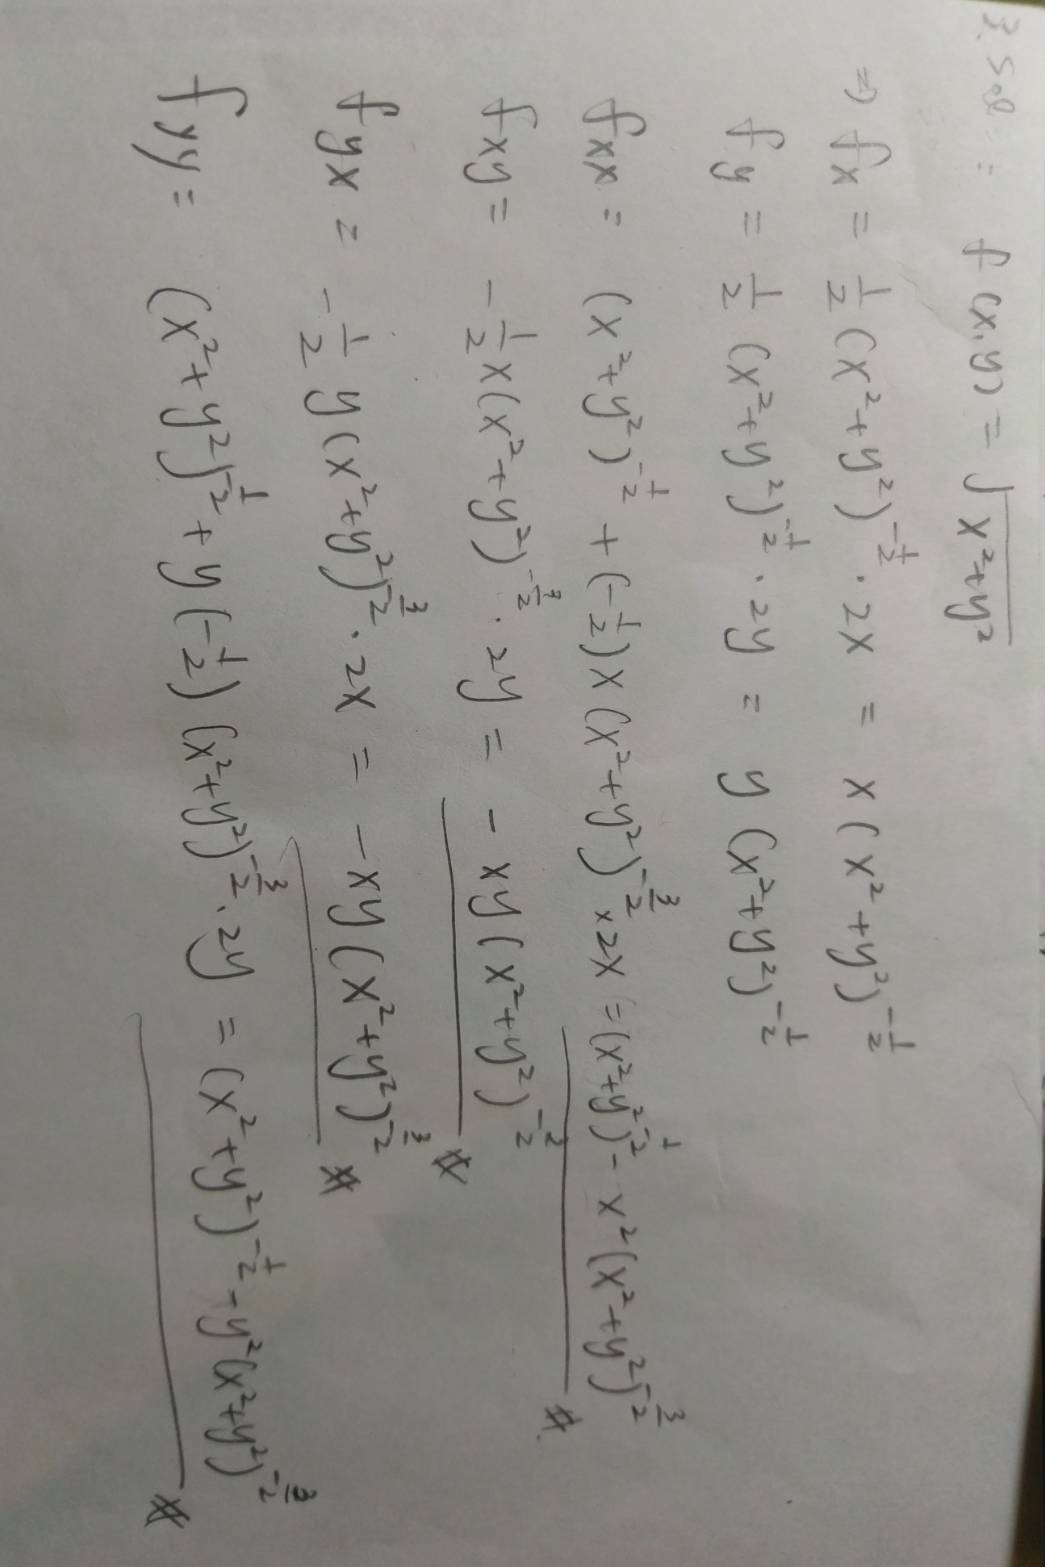 3. Sol : f(x,y) = √(x²+y²)
⇒ fx = 1/2 (x²+y²)^(-1/2) · 2x = x(x²+y²)^(-1/2)
fy = 1/2 (x²+y²)^(-1/2) · 2y = y(x²+y²)^(-1/2)
fxx = (x²+y²)^(-1/2) + (-1/2)x(x²+y²)^(-3/2) ×2x = (x²+y²)^(-1/2) - x²(x²+y²)^(-3/2) #
fxy = -1/2 x(x²+y²)^(-3/2) · 2y = -xy(x²+y²)^(-3/2) #
fyx = -1/2 y(x²+y²)^(-3/2) · 2x = -xy(x²+y²)^(-3/2) #
fyy = (x²+y²)^(-1/2) + y(-1/2)(x²+y²)^(-3/2) · 2y = (x²+y²)^(-1/2) - y²(x²+y²)^(-3/2) #